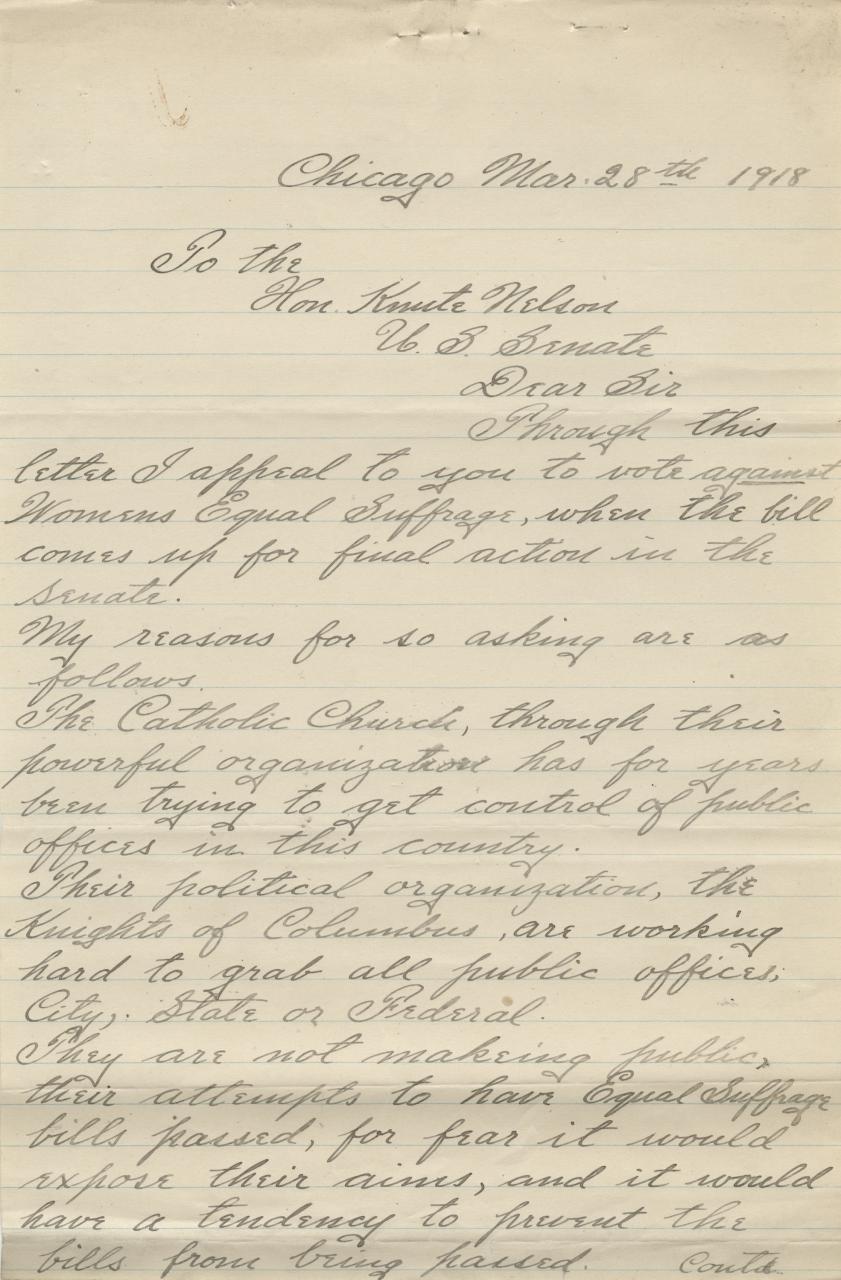 Chicago Mar. 28th 1918
To the
Hon. Knute Nelson
U. S. Senate
Dear Sir
Through this
letter I appeal to you to vote against
Womens Equal Suffrage, when the bill
comes up for final action in the
senate.
My reasons for so asking are as
follows.
The Catholic Church, through their
powerful organization has for years
been trying to get control of public
offices in this country.
Their political organization, the
Knights of Columbus, are working
hard to grab all public offices,
City, State or Federal.
They are not makeing public,
their attempts to have Equal Suffrage
bills passed, for fear it would
expose their aims, and it would
have a tendency to prevent the
bills from being passed. Contd.